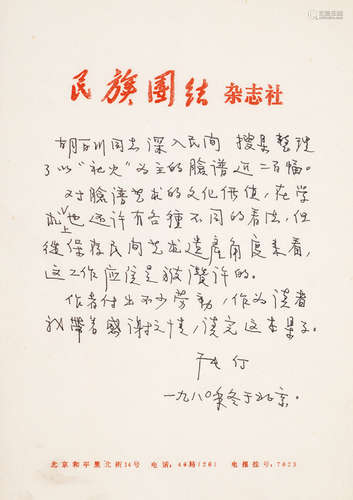 民族團结 杂志社
胡百川同志深入民间 搜集整理
了以“社火”为主的臉谱近二百幅。
对于臉譜艺术的文化价值，在学
术上也还许有各種不同的看法，但
從保存民间艺术遗產角度来看，
这工作应該是被讚许的。
作者付出不少劳動，作为读者
我帶着感谢之情，读完这本集子。
一九八〇年冬于北京.
北京和平里北街14号 电话:46局(261) 电报挂号:7023